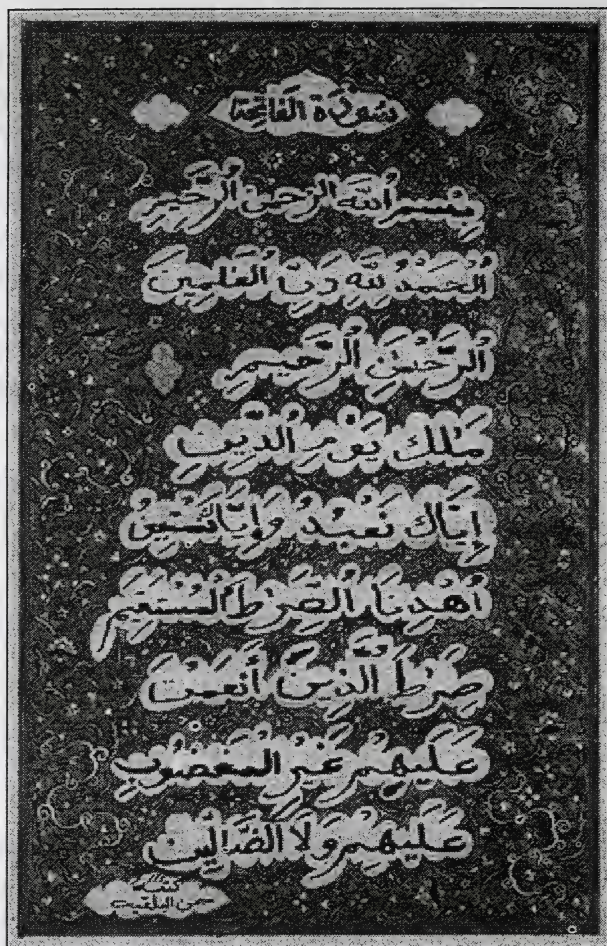 سورة الفاتحة
بسم الله الرحمن الرحيم
ٱلْحَمْدُ لِلَّهِ رَبِّ ٱلْعَٰلَمِينَ
ٱلرَّحْمَٰنِ ٱلرَّحِيمِ
مَٰلِكِ يَوْمِ ٱلدِّينِ
إِيَّاكَ نَعْبُدُ وَإِيَّاكَ نَسْتَعِينُ
ٱهْدِنَا ٱلصِّرَٰطَ ٱلْمُسْتَقِيمَ
صِرَٰطَ ٱلَّذِينَ أَنْعَمْتَ
عَلَيْهِمْ غَيْرِ ٱلْمَغْضُوبِ
عَلَيْهِمْ وَلَا ٱلضَّآلِّينَ
كتبه